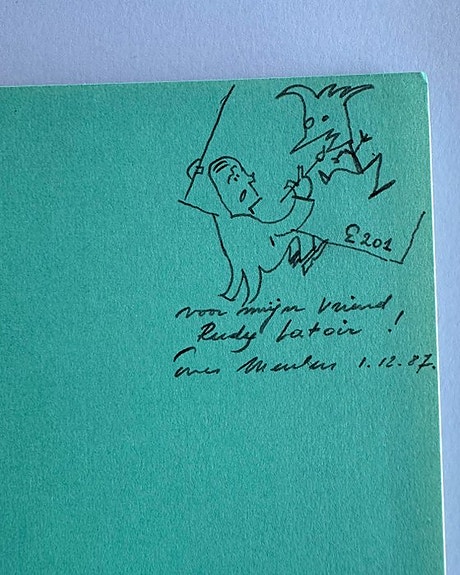 E201
voor mijn vriend
Rudy Latoir !
Meulen 1.12.87.